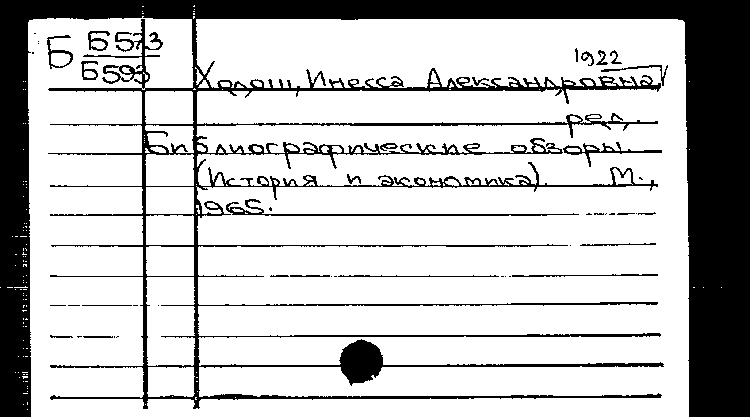 Б Б573
Б593
1922
Ходош, Инесса Александровна,
ред.
Библиографические обзоры.
(История и экономика). М.,
1965.